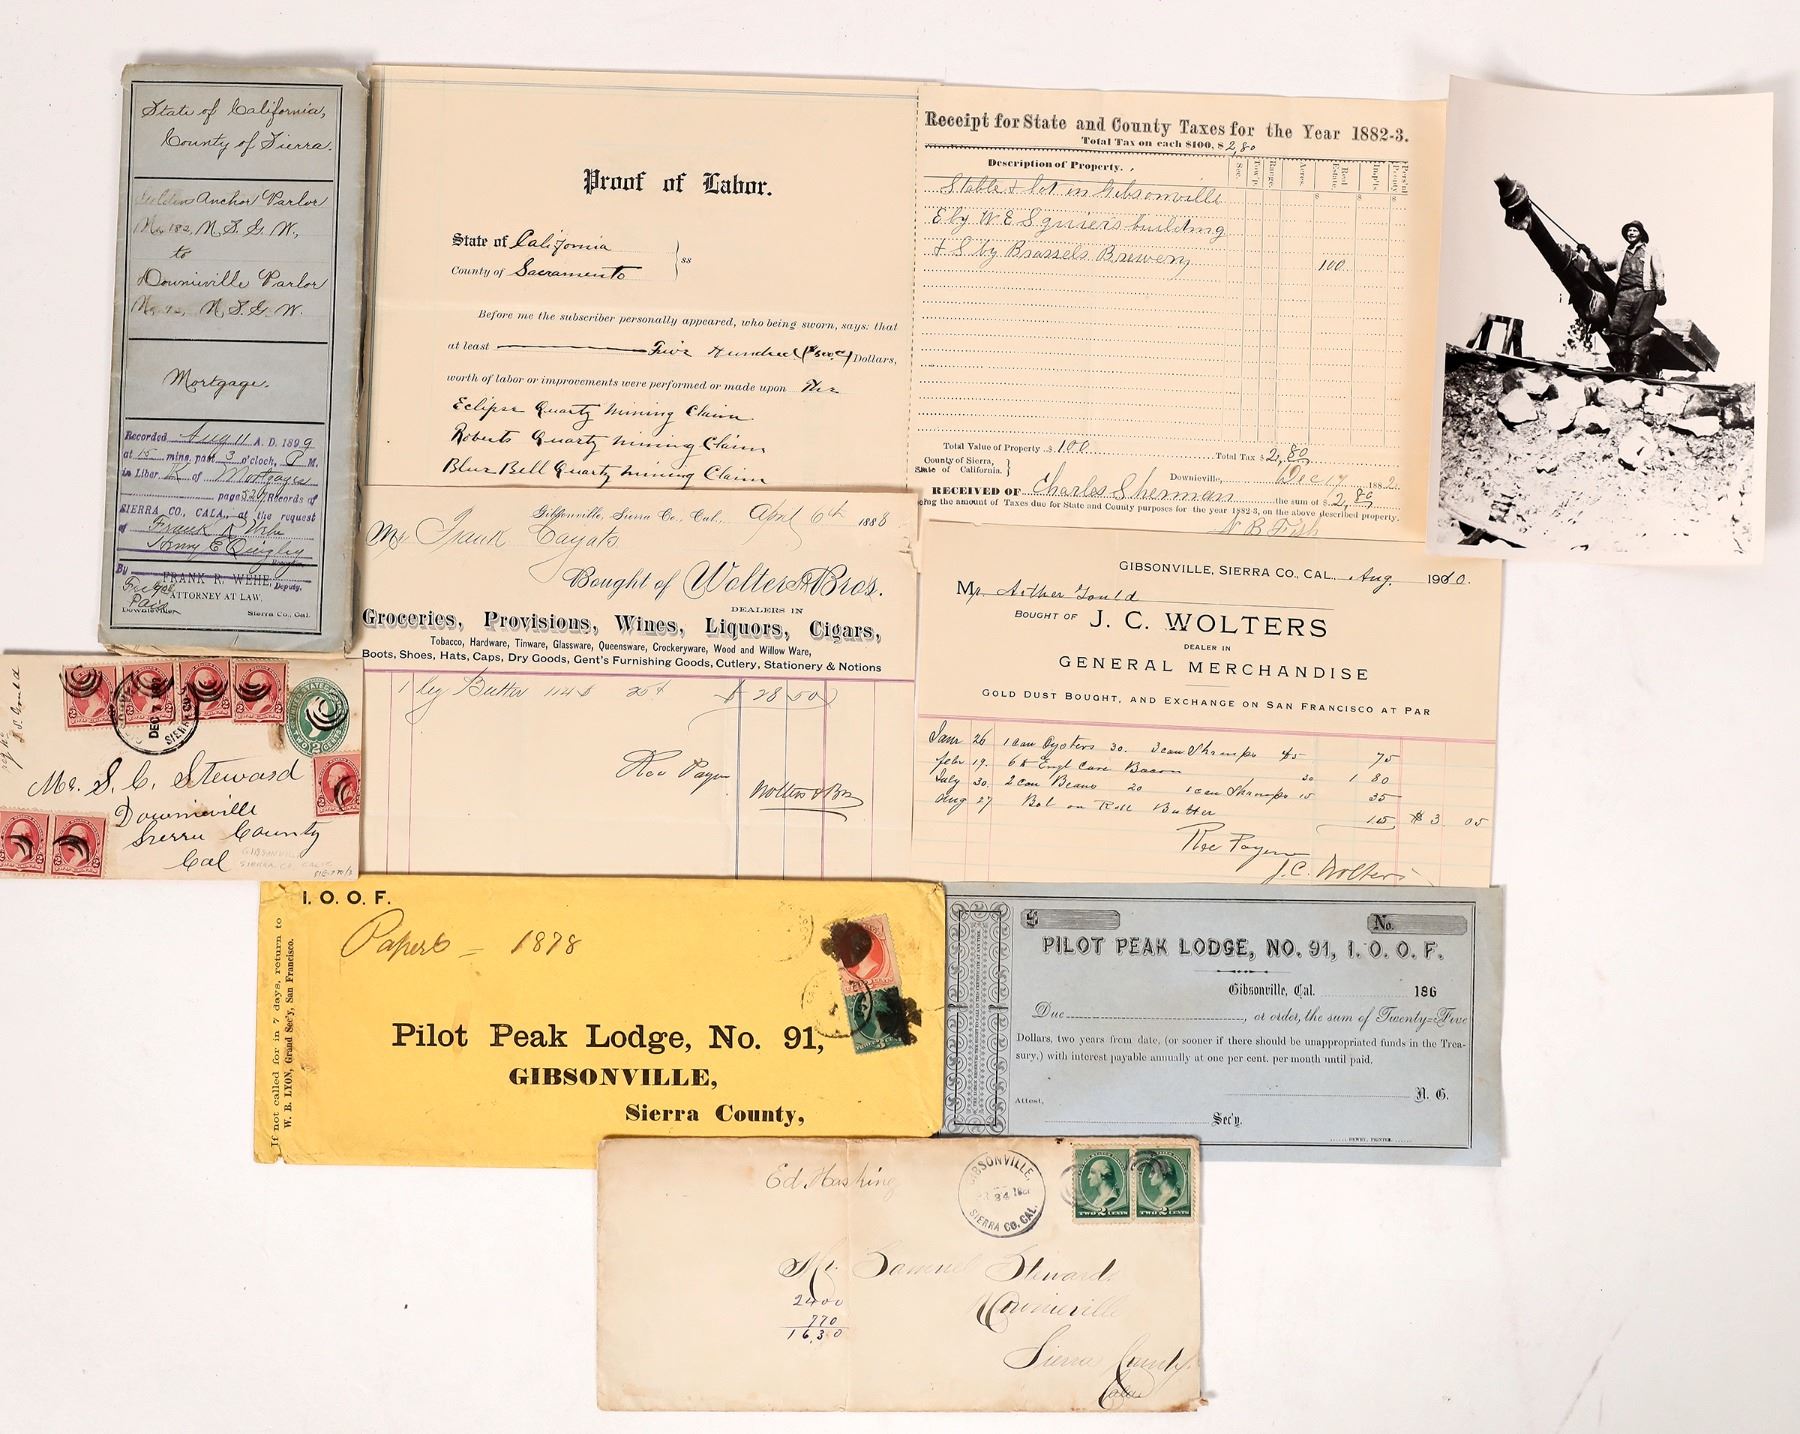 State of California,
County of Sierra.
Golden Anchor Parlor
No. 182, N. S. G. W.,
to
Downieville Parlor
No. 92, N. S. G. W.
Mortgage.
Recorded Aug 11 A. D. 1899
at 15 mins. past 3 o'clock, P M.
in Liber K of Mortgages
page 520, Records of
SIERRA CO., CALA., at the request
of Frank R Wehe
By
FRANK R. WEHE, Deputy.
ATTORNEY AT LAW,
Paid
Downieville Sierra Co., Cal.
Proof of Labor.
State of California
County of Sacramento
ss
Before me the subscriber personally appeared, who being sworn, says: that
at least Five Hundred Dollars,
worth of labor or improvements were performed or made upon the
Eclipse Quartz Mining Claim
Roberts Quartz Mining Claim
Blue Bell Quartz Mining Claim
Receipt for State and County Taxes for the Year 1882-3.
Total Tax on each $100, $ 2,80
Description of Property. Sec. Tow'p. Range. Acres. Real Estate. Impts Pers'nl Prop'ty
$ $ $
Stable & lot in Gibsonville
E by W E Squiers building
& S by Brassels Brewery 100
Total Value of Property $ 100 Total Tax $ 2,80
County of Sierra,
State of California. }
Downieville, Dec 19 1882.
RECEIVED OF Charles Sherman the sum of $ 2,80
being the amount of Taxes due for State and County purposes for the year 1882-3, on the above described property.
N B Fish
Gibsonville, Sierra Co., Cal., April 6th 1888
Mr Frank Cayots
Bought of Wolters Bros.
DEALERS IN
Groceries, Provisions, Wines, Liquors, Cigars,
Tobacco, Hardware, Tinware, Glassware, Queensware, Crockeryware, Wood and Willow Ware,
Boots, Shoes, Hats, Caps, Dry Goods, Gent's Furnishing Goods, Cutlery, Stationery & Notions
1 keg Butter 114 25¢ $ 28 50
Rec Paym
Wolters Bros
GIBSONVILLE, SIERRA CO., CAL., Aug. 1910.
Mr Arther Gould
BOUGHT OF J. C. WOLTERS
DEALER IN
GENERAL MERCHANDISE
GOLD DUST BOUGHT, AND EXCHANGE ON SAN FRANCISCO AT PAR
Janr 26 1 can Oysters 30 3 can Shrimps 45 75
febr 19. 6 lb Engl Care Bacon 30 1 80
July 30. 2 can Beans 20 1 can Shrimps 15 35
Aug 27 Bal on Roll Butter 15 $ 3 05
Rec Paym
J. C. Wolters
S S Gould
DEC 7
SIERRA CO.
UNITED STATES
TWO 2 CENTS
Mr. S. C. Steward
Downieville
Sierra County
Cal
GIBSONVILLE
SIERRA CO. CALIF
I. O. O. F.
Papers = 1878
If not called for in 7 days, return to
W. B. LYON, Grand Sec'y, San Francisco.
Pilot Peak Lodge, No. 91,
GIBSONVILLE,
Sierra County,
$ No.
PILOT PEAK LODGE, NO. 91, I. O. O. F.
Gibsonville, Cal. 186
Due, or order, the sum of Twenty=Five
Dollars, two years from date, (or sooner if there should be unappropriated funds in the Trea-
sury,) with interest payable annually at one per cent. per month until paid.
N. G.
Attest,
Sec'y.
DEWEY, PRINTER.
Ed Hosking
GIBSONVILLE,
24
SIERRA CO. CAL.
TWO 2 CENTS
TWO 2 CENTS
Mr. Samuel Steward
Downieville
Sierra County
2400
770
1630